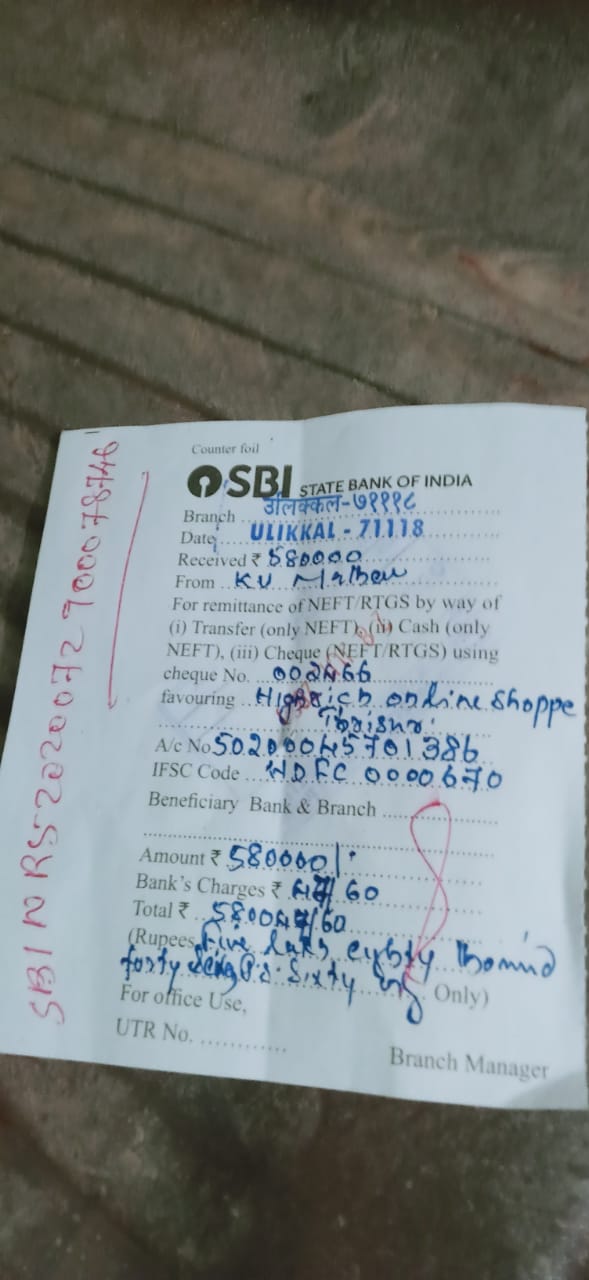 Counter foil
SBI STATE BANK OF INDIA
Branch उलिक्कल-७१११८
Date ULIKKAL - 71118
Received ₹ 580000
From K V Mathew
For remittance of NEFT/RTGS by way of
(i) Transfer (only NEFT), (ii) Cash (only
NEFT), (iii) Cheque (NEFT/RTGS) using
cheque No. 002466
favouring Highrich online Shoppe
Thrisur
A/c No 50200045701386
IFSC Code HDFC 0000670
Beneficiary Bank & Branch
Amount ₹ 580000/-
Bank's Charges ₹ 47/60
Total ₹ 580047/60
(Rupees Five lakh eighty
forty Sixty Only)
For office Use,
UTR No.
Branch Manager
SBINR52020072900078746